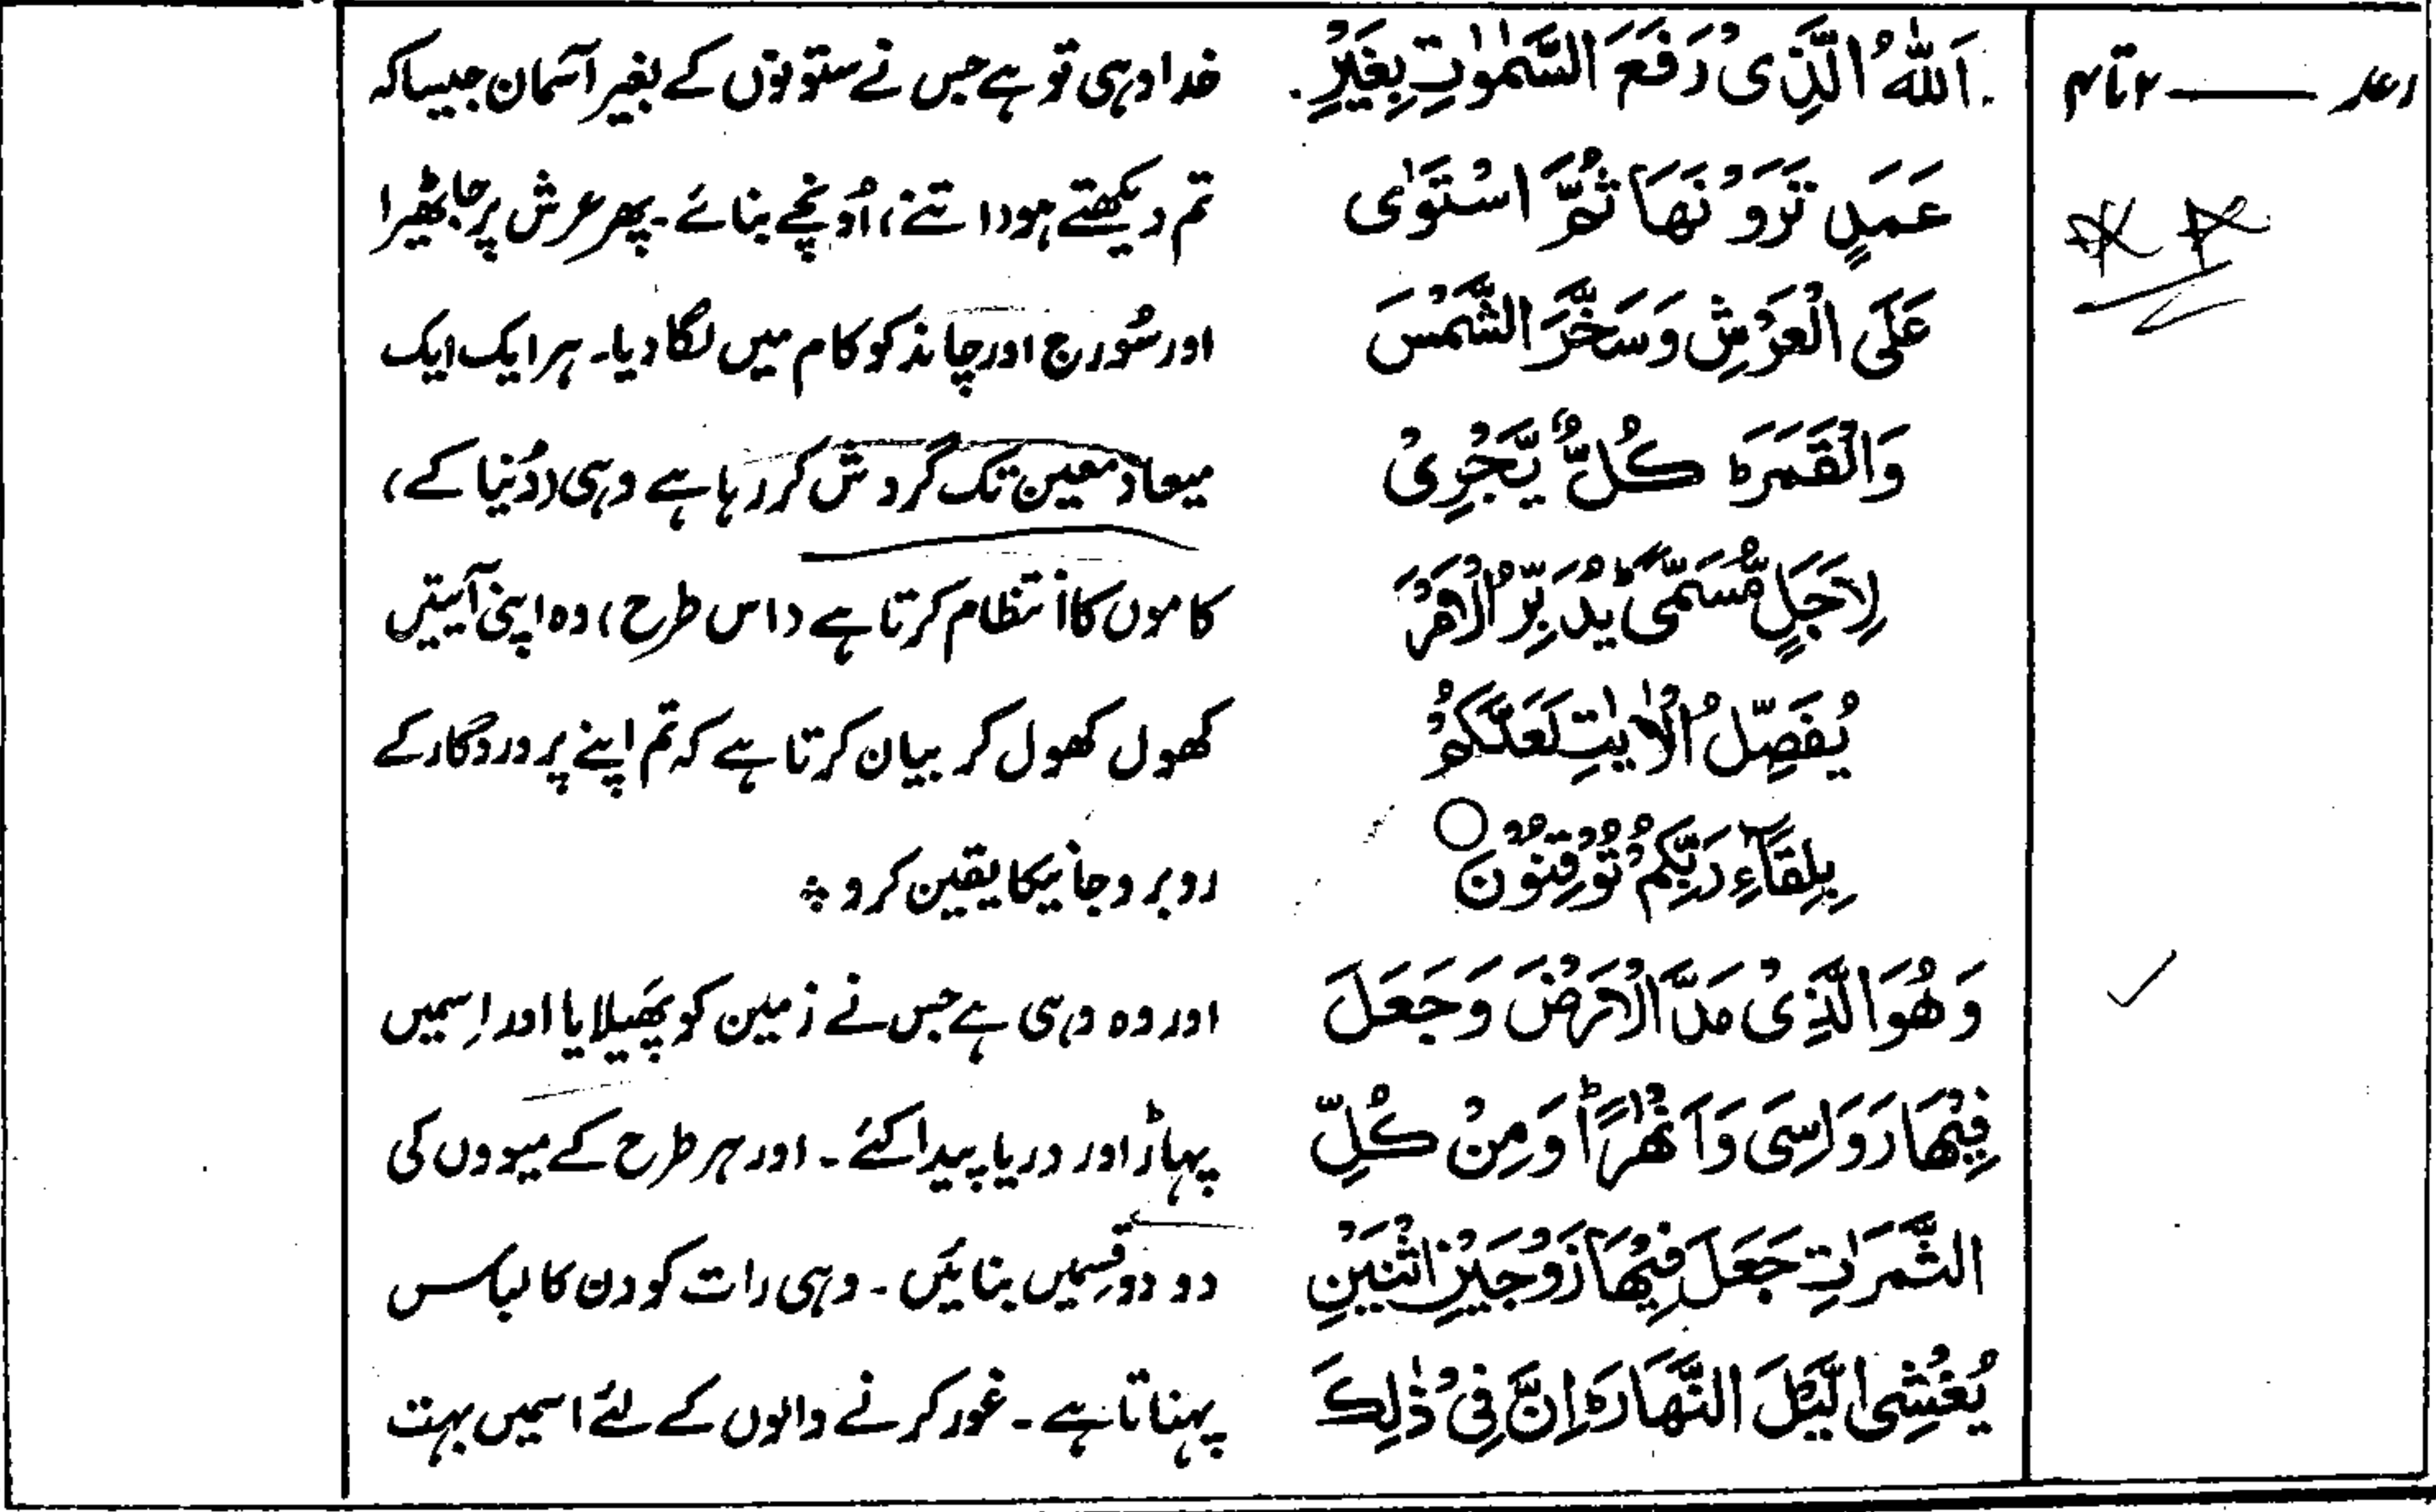 رعد ۲ تا ۴
اَللّٰهُ الَّذِیْ رَفَعَ السَّمٰوٰتِ بِغَیْرِ
عَمَدٍ تَرَوْنَهَا ثُمَّ اسْتَوٰی
عَلَی الْعَرْشِ وَسَخَّرَ الشَّمْسَ
وَالْقَمَرَ ط كُلٌّ یَّجْرِیْ
لِاَجَلٍ مُّسَمًّی ط یُدَبِّرُ الْاَمْرَ
یُفَصِّلُ الْاٰیٰتِ لَعَلَّكُمْ
بِلِقَآءِ رَبِّكُمْ تُوْقِنُوْنَ ○
وَهُوَ الَّذِیْ مَدَّ الْاَرْضَ وَجَعَلَ
فِیْهَا رَوَاسِیَ وَاَنْهٰرًا ط وَمِنْ كُلِّ
الثَّمَرٰتِ جَعَلَ فِیْهَا زَوْجَیْنِ اثْنَیْنِ
یُغْشِی الَّیْلَ النَّهَارَ ط اِنَّ فِیْ ذٰلِكَ
خدا وہی تو ہے جس نے ستونوں کے بغیر آسمان جیسا کہ
تم دیکھتے ہو (اتنے) اُونچے بنائے۔ پھر عرش پر جا ٹھیرا
اور سُورج اور چاند کو کام میں لگا دیا۔ ہر ایک ایک
میعاد معین تک گردش کر رہا ہے وہی (دُنیا کے)
کاموں کا انتظام کرتا ہے (اس طرح) وہ اپنی آیتیں
کھول کھول کر بیان کرتا ہے کہ تم اپنے پروردگار کے
روبرو جانیکا یقین کرو ؞
اور وہ وہی ہے جس نے زمین کو پھَیلایا اور اِسمیں
پہاڑ اور دریا پیدا کئے۔ اور ہر طرح کے میووں کی
دو دو قِسمیں بنائیں۔ وہی رات کو دن کا لباس
پہناتا ہے۔ غور کرنے والوں کے لئے اسمیں بہت